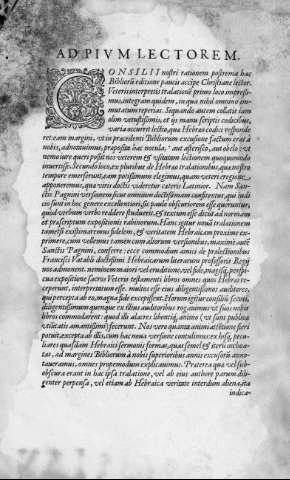 AD PIVM LECTOREM.
CONSILII nostri rationem postrema hac
Bibliorū editione paucis accipe Christiane lector.
Veteris interpretis tralatione primo loco impressi-
mus, integram quidem, in qua nihil omnino im-
mutatum reperias. Siquando autem collatis iam
olim vetustissimis, et iis manu scriptis codicibus,
varia occurrit lectio, quæ Hebræo codici responde
ret: eam margini, vti in præcedenti Bibliorum excusione factum erat à
nobis, adnotauimus, proposita hac notula, ' aut asterisco, aut obelo: vt
nemo iure queri possit nos veterem & vsitatam lectionem quoquomodo
inuertisse. Secundo loco, ex pluribus de Hebræo tralationibus, quas nostra
tempora emiserunt, eam potissimum elegimus, quam veteri è regione
apponeremus, quæ viris doctis videretur cæteris Latinior. Nam San-
ctis Pagnini versionem sicut omnium doctissimam
quod verbum verbo reddere studuerit, & textum esse dicat ad normam
et præscriptum expositionis rabinorum. Hanc igitur nouā tralationem
tametsi existimaremus fidelem, & veritatem Hebraicam proxime ex-
primere, cum vellemus tamen cum aliorum versionibus, maximè autē
Sanctis Pagnini, conferre: ecce commodum amici de prælectionibus
Francisci Vatabli doctissimi Hebraicarum literarum professoris Regij
nos admonent. neminem maiori vel eruditione, vel fide,
cua expositione sacros Veteris testamenti libros omnes
cæperunt, interpretatum esse. multos esse eius diligentissimos auditores,
qui percepta ab eo, magna fide excepissent. Horum igitur consilij secuti,
diligentissimum quenque ex illius auditoribus rogauimus vt suos nobis
libros commodarent: quod illi alacres libentiq́; animo (vt sunt publicæ
vtilitatis amantissimi) fecerunt. Nos vero quanta animi attētione fieri
potuit, excepta ab illis, cum hac noua versione contulimus:
liares quasdam Hebraici sermonis formas, quas semel &
tas, ad margines Bibliorum à nobis superioribus annis excusorū
taueramus, omnes propemodum explicauimus. Præterea quæ vel sub-
obscura erant in hac ipsa tralatione, vel ab eius authore parum dili-
genter perpensa, vel etiam ab Hebraica veritate interdum aliena, ita
indica-